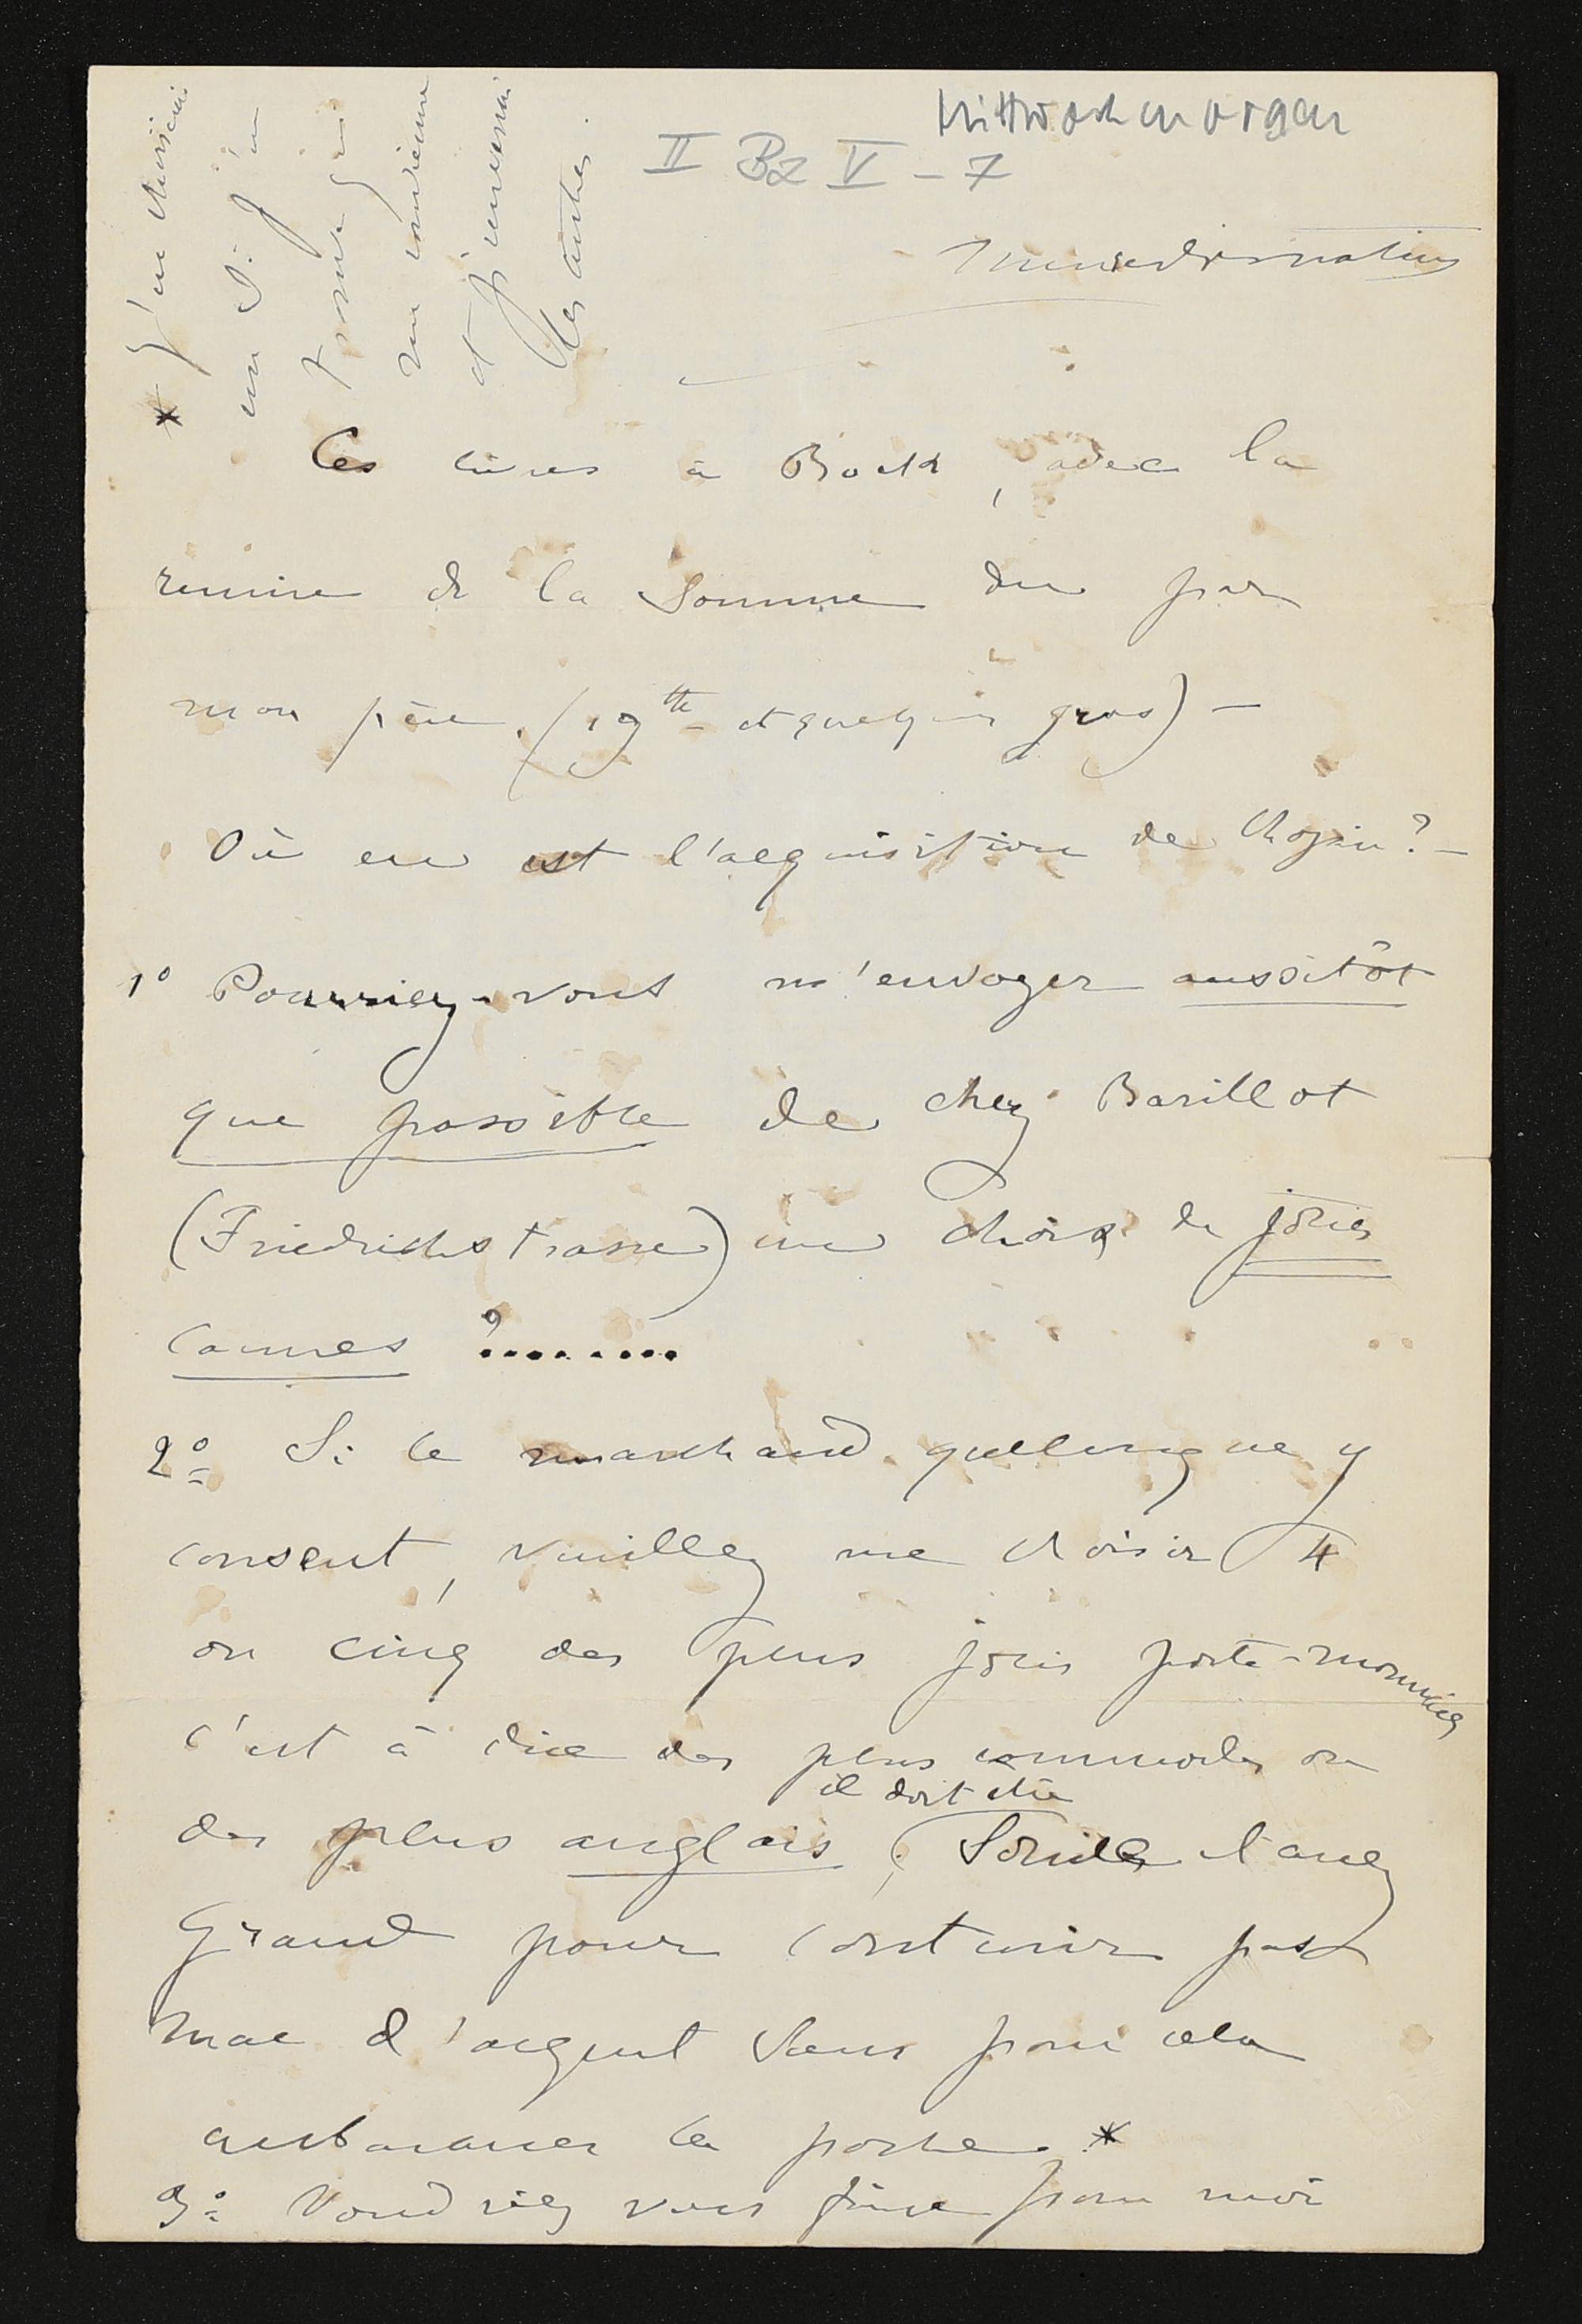 Mittwochmorgen
II Bz V - 7
Mercredi matin
* J'en choisirai
un s'il j'en
trouve qui
me convienne
et j'enverrai
les autres.
Ces livres à Bock, avec la
remise de la Somme due par
mon père. (19 tt et quelques gros) -
Où en est l'acquisition de Chopin? -
1° Pourriez-vous m'envoyer aussitôt
que possible de chez Barillot
(Friedrichstrasse) un choix de jolies
cannes ?........
2° Si le marchand quelconque y
consent, veuillez me choisir 4
ou cinq des plus jolis porte-monnaies
c'est à dire des plus commodes ou
des plus anglais, il doit être Solide et assez
grand pour contenir pas
mal d'argent Sans pour cela
embarasser la poche. *
3° Voudriez vous faire pour moi